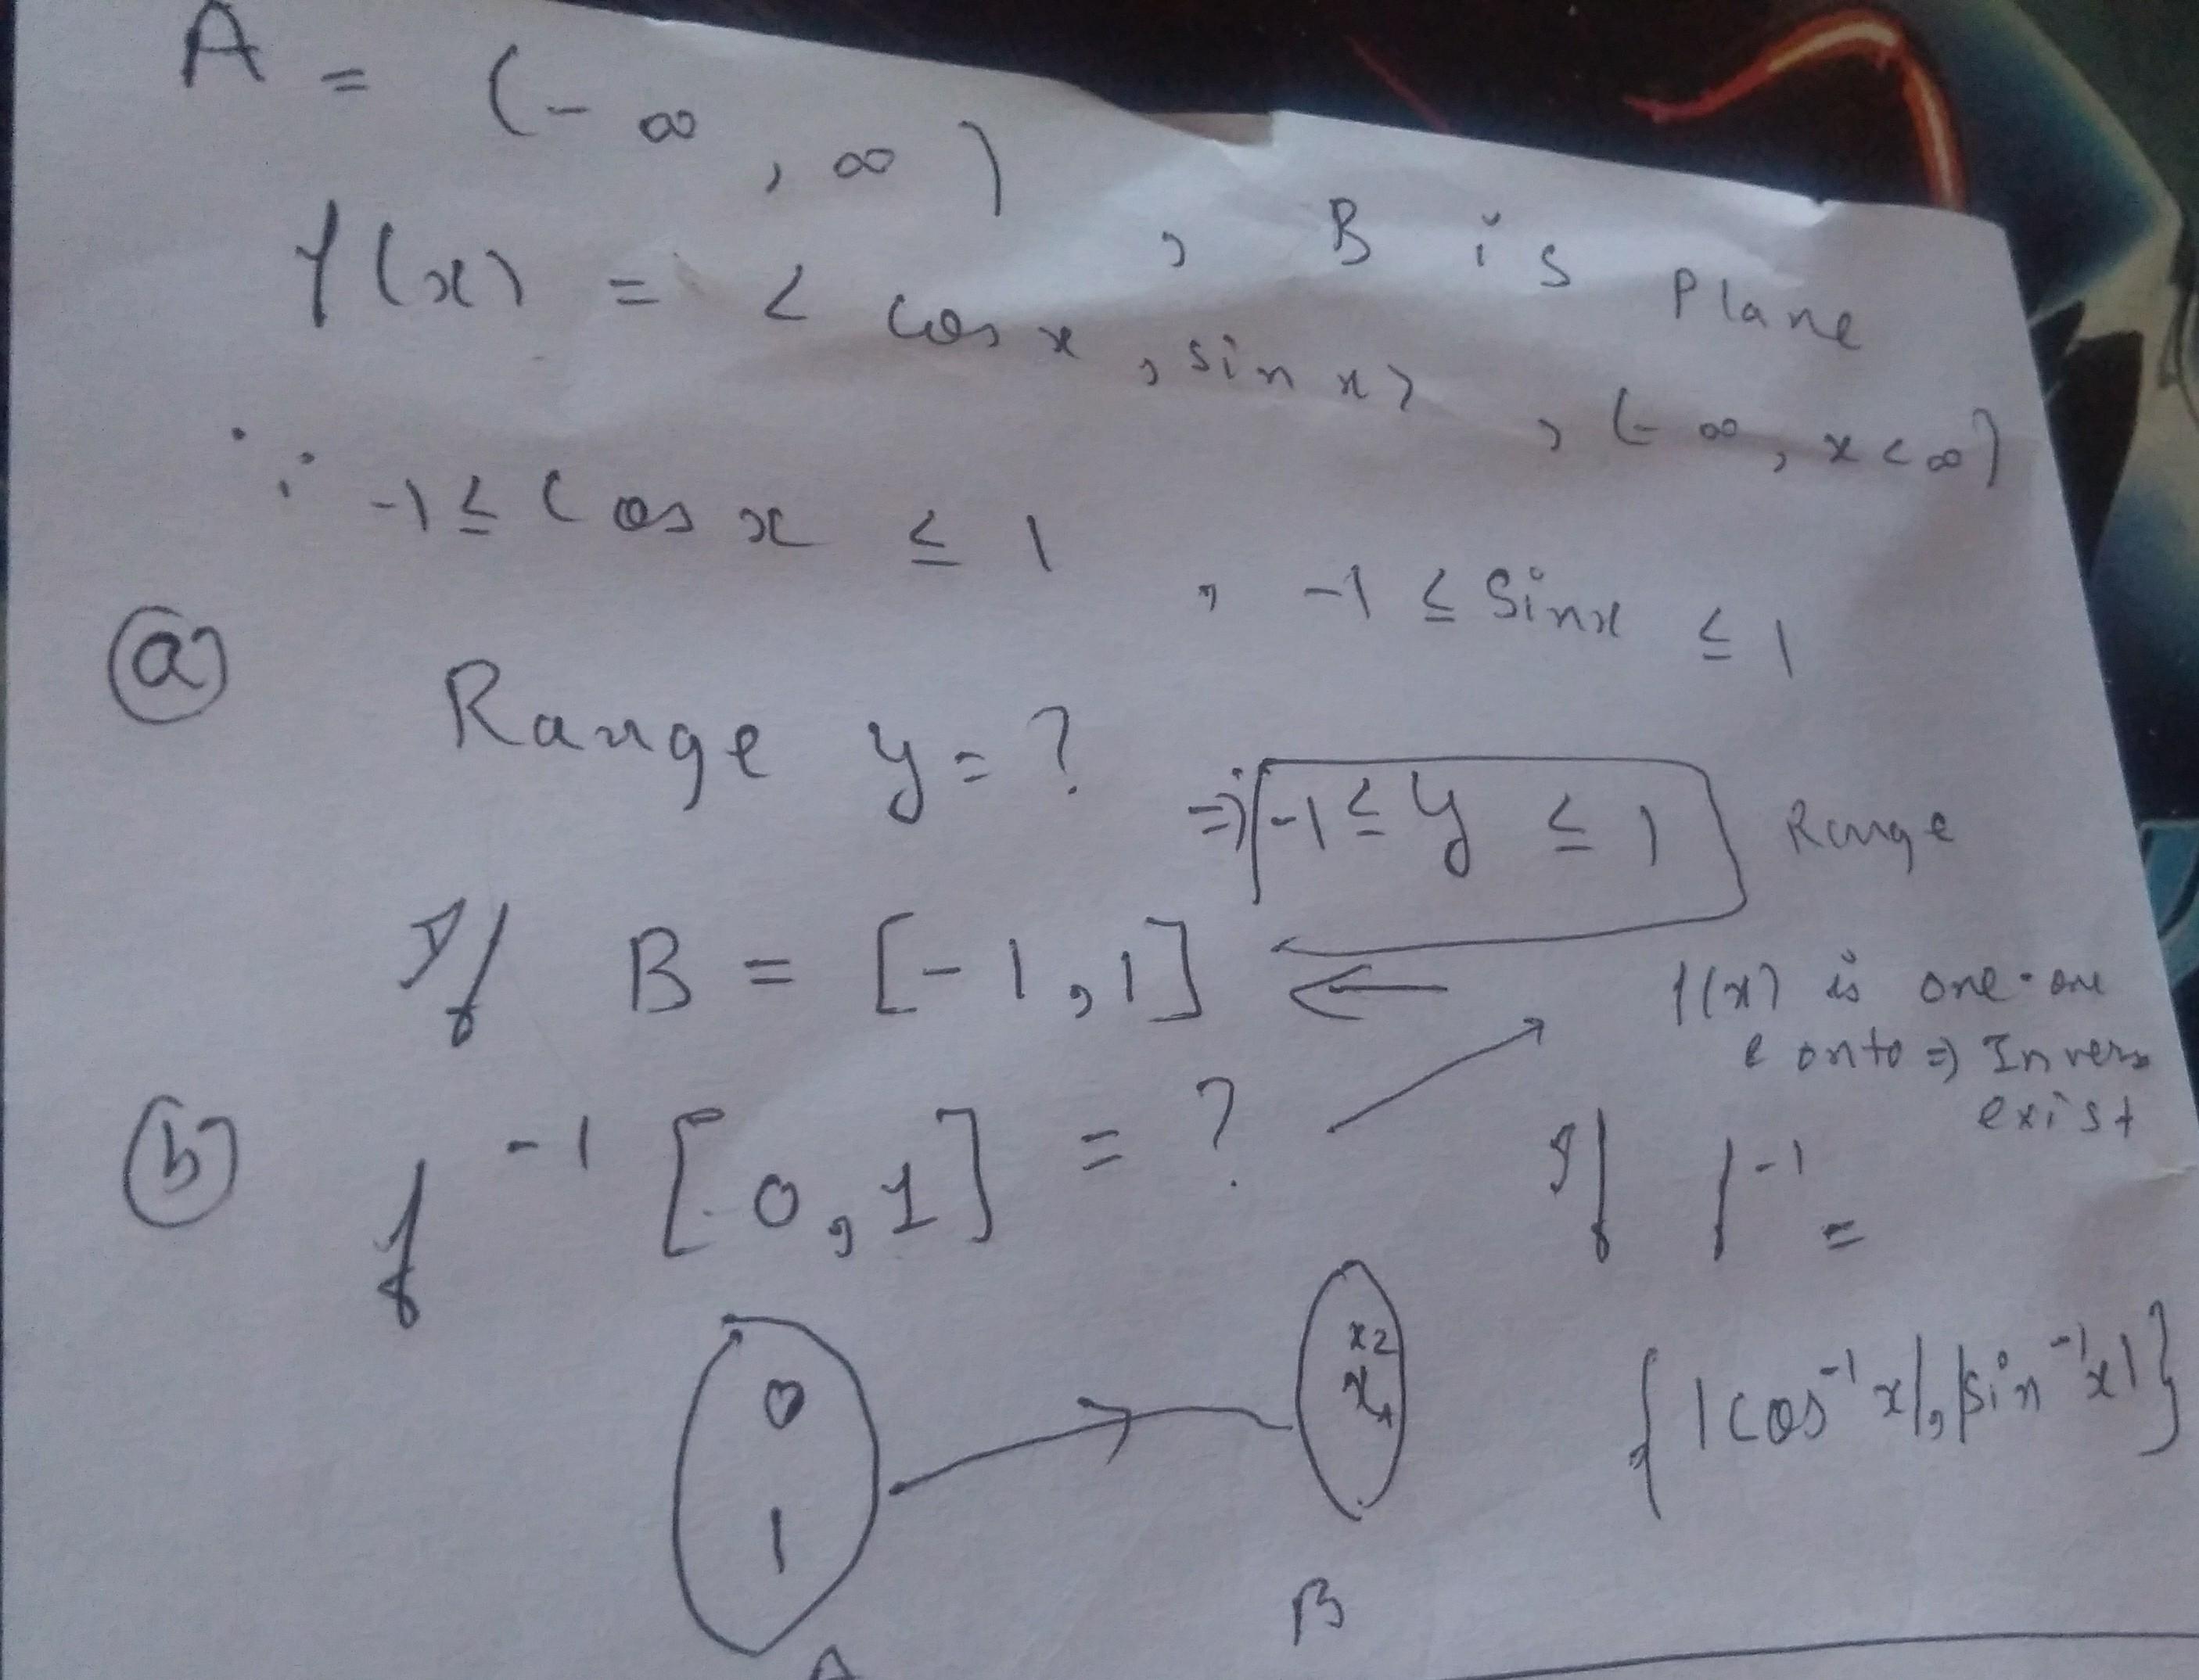 A = (-∞, ∞), B is Plane
f(x) = < cos x, sin x>, (-∞, x<∞)
∵ -1 ≤ Cos x ≤ 1, -1 ≤ Sinx ≤ 1
(a) Range y = ? ⇒ -1 ≤ y ≤ 1 Range
If B = [-1, 1] ⇐
f(x) is one-one
& onto ⇒ Invers
exist
(b) f⁻¹ [0, 1] = ?
If f⁻¹ =
{|cos⁻¹x|, |sin⁻¹x|}
0
1
A
x2
x1
B